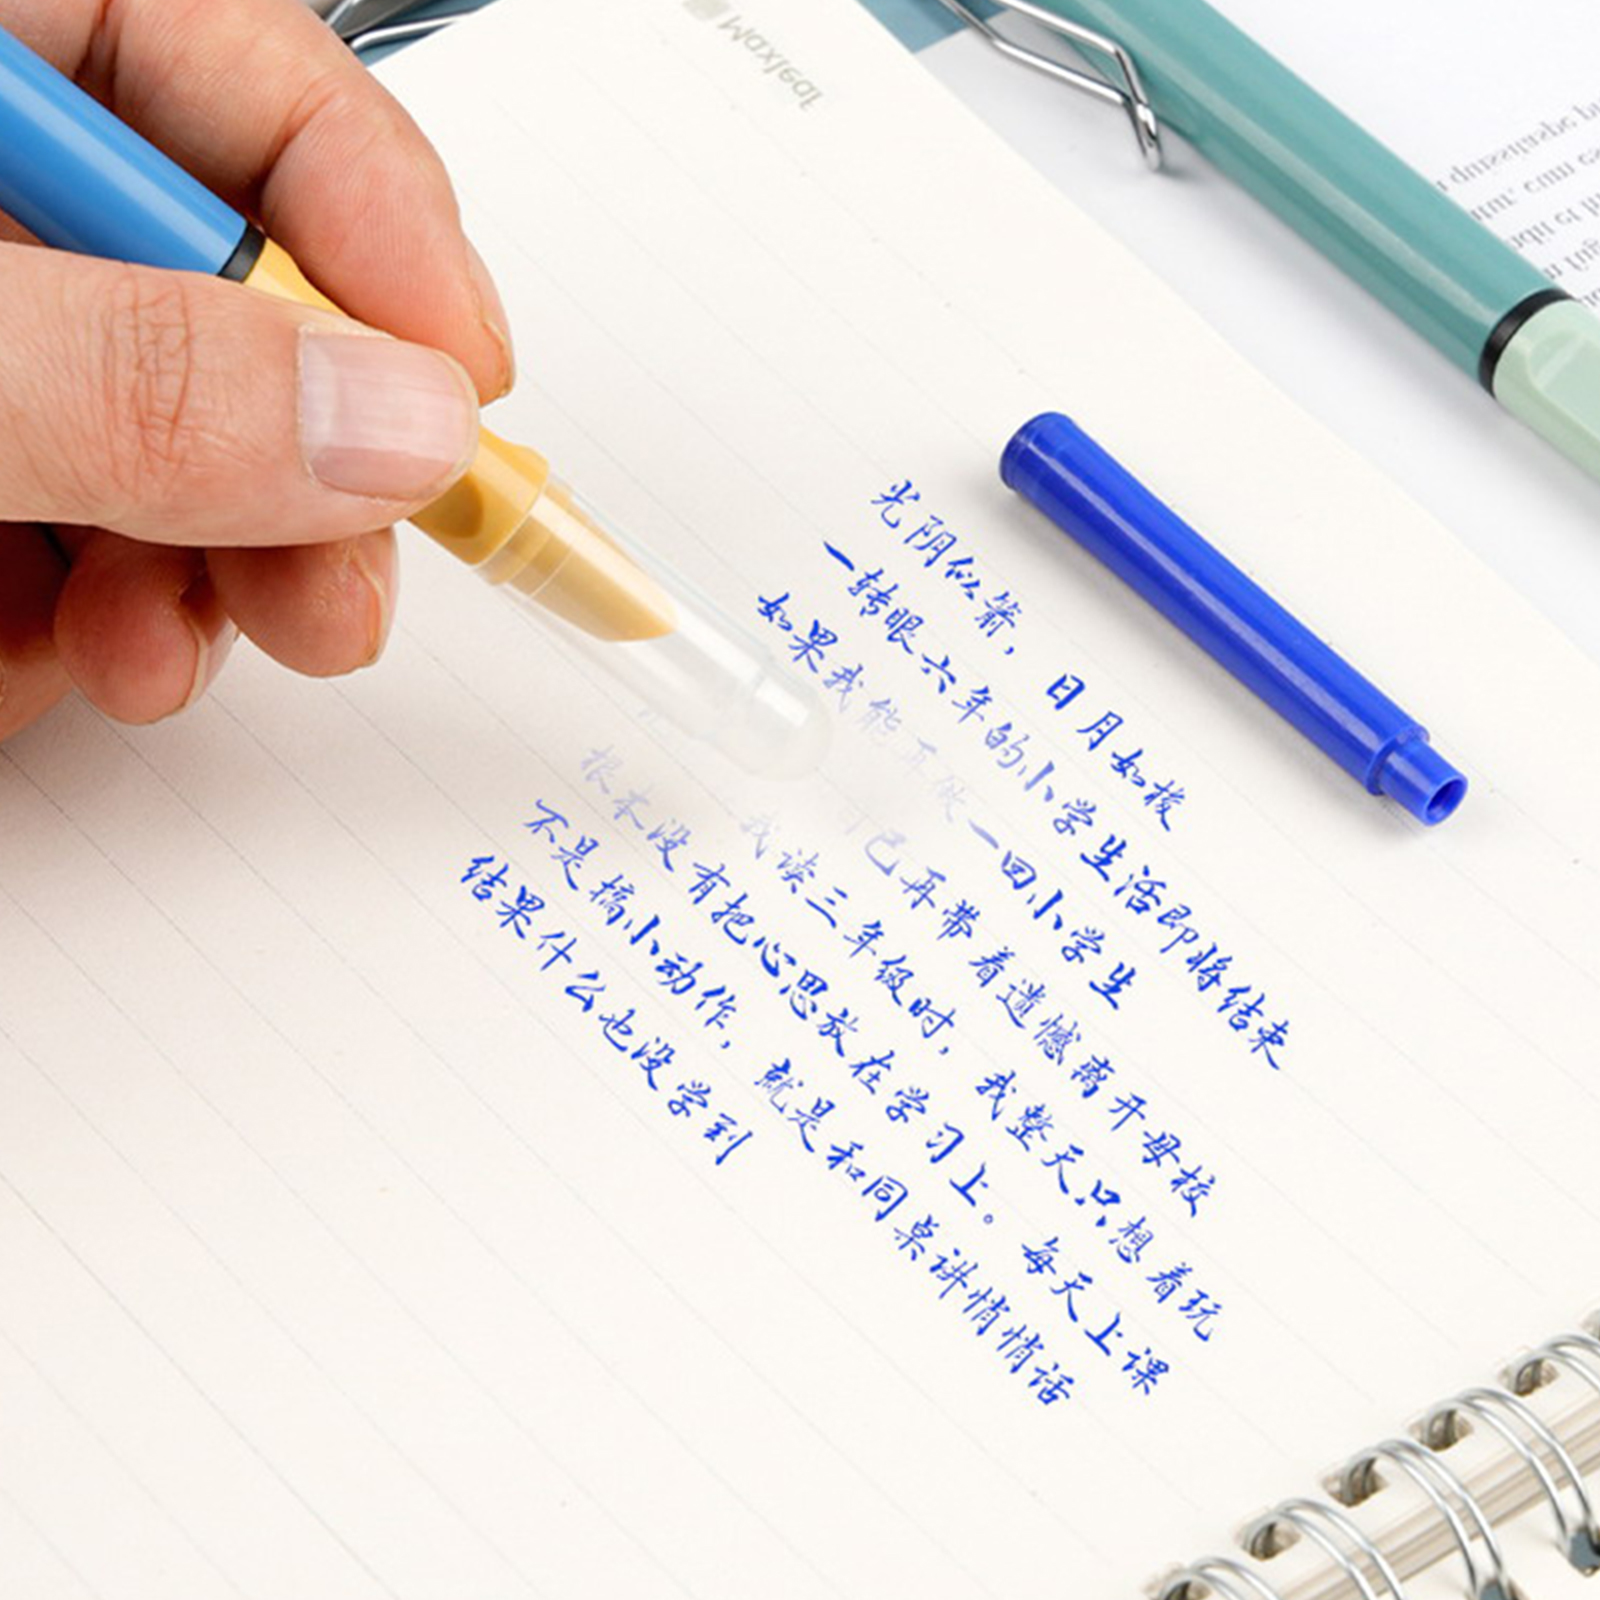 Maxleaf
光阴似箭，日月如梭
一转眼六年的小学生活即将结束
如果我能再做一回小学生
己再带着遗憾离开母校
我读三年级时，我整天只想着玩
根本没有把心思放在学习上。每天上课
不是搞小动作，就是和同桌讲悄悄话
结果什么也没学到